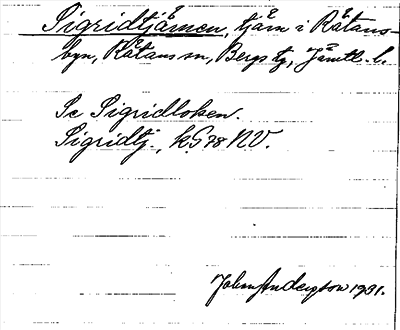 Sigridtjärnen, tjärn i Rätans-
byn, Rätans sn, Bergs tg, Jämtl. l.
Se Sigridloken.
Sigridtj., k G 78 NV.
John Anderson 1931.